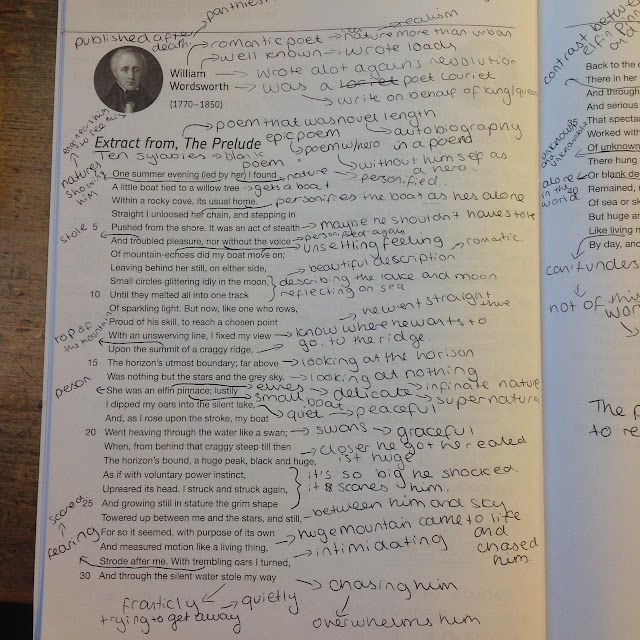 panthies
realism
published after death
romantic poet → nature more than urban
well known → wrote loads
William
Wordsworth
(1770–1850)
wrote alot agains revolution
was a poet loriet
write on behalf of king/queen
contrast between
Extract from, The Prelude
poem that was novel length
epic poem
autobiography
in a poem
poem w hero
without himself as
a hero..
Ten sylables → blank
poem
natures
showing
him
One summer evening (led by her) I found
nature
personified
A little boat tied to a willow tree
gets a boat
Within a rocky cove, its usual home.
personifies the boat as hes alone
Straight I unloosed her chain, and stepping in
stole
5 Pushed from the shore. It was an act of stealth
maybe he shouldn't have stole
And troubled pleasure, nor without the voice
personified again
unsettling feeling
romantic.
Of mountain-echoes did my boat move on;
Leaving behind her still, on either side,
beautiful description
Small circles glittering idly in the moon,
describing the lake and moon
10 Until they melted all into one track
reflecting on sea
Of sparkling light. But now, like one who rows,
Proud of his skill, to reach a chosen point
he went straight
top of
the mountain
With an unswerving line, I fixed my view
know where he wants to
Upon the summit of a craggy ridge,
go. to the ridge.
15 The horizon's utmost boundary; far above
looking at the horison
Was nothing but the stars and the grey sky.
looking at nothing
person
She was an elfin pinnace; lustily
elves
small boat
delicate
infinate nature
supernatural
I dipped my oars into the silent lake,
quiet
peaceful
And, as I rose upon the stroke, my boat
20 Went heaving through the water like a swan;
swans → graceful
When, from behind that craggy steep till then
closer he got he realed
The horizon's bound, a huge peak, black and huge,
ist huge
As if with voluntary power instinct,
it's so big he shocked.
Upreared its head. I struck and struck again,
it & scares him.
scared
25 And growing still in stature the grim shape
between him and sky
Towered up between me and the stars, and still,
rearing
For so it seemed, with purpose of its own
huge mountain came to life
and
chased
him.
And measured motion like a living thing,
intimidating
Strode after me. With trembling oars I turned,
30 And through the silent water stole my way
chasing him
frantically
quietly.
trying to get away
overwhelms him
Back to the
There in her
And through
And serious
That specta
Worked with
unknown
Of unknown
There hung
alone
in the
world
Or blank de
Remained,
Of sea or sk
But huge a
Like living
By day, an
can't undes
not of this
world
The p
to re